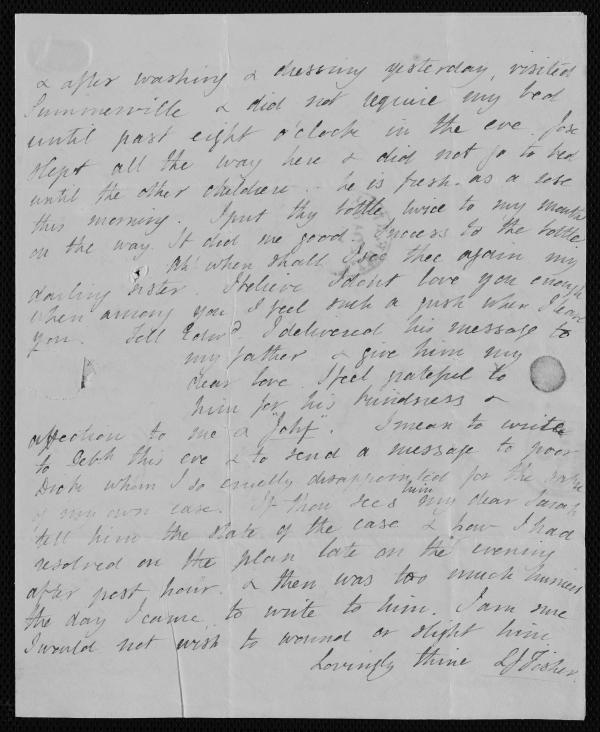 & after washing & dressing yesterday, visited
Summerville & did not require my bed
until past eight o'clock in the eve. Jose
slept all the way here & did not go to bed
until the other children - he is fresh as a rose
this morning. I put thy bottle twice to my mouth
on the way. It did me good. Success to the bottle.
Ah! when shall I see thee again my
darling sister. I believe I don't love you enough
when among you I feel such a gush when I leave
you. Tell Edwd. I delivered his message to
my father & give him my
dear love. I feel grateful to
him for his kindness &
affection to me & "
I mean to write
to this eve & to send a message to poor
Dick whom I so cruelly disappointed for the sake
of my own ease. If thou sees him my dear Sarah
tell him the state of the case & how I had
resolved on the plan late on the evening
after post hour. & then was too much hurried
the day I came, to write to him. I am sure
I would not wish to wound or slight him
Lovingly thine LJ Fisher.